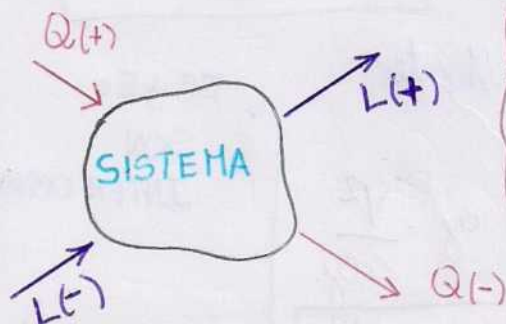 Q(+)
L(+)
SISTEMA
L(-)
Q(-)